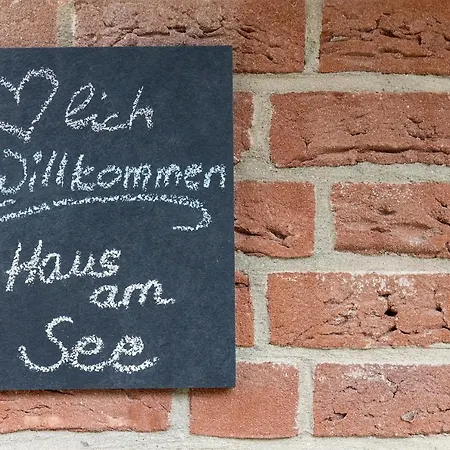 ♡lich
Willkommen
Haus
am
See